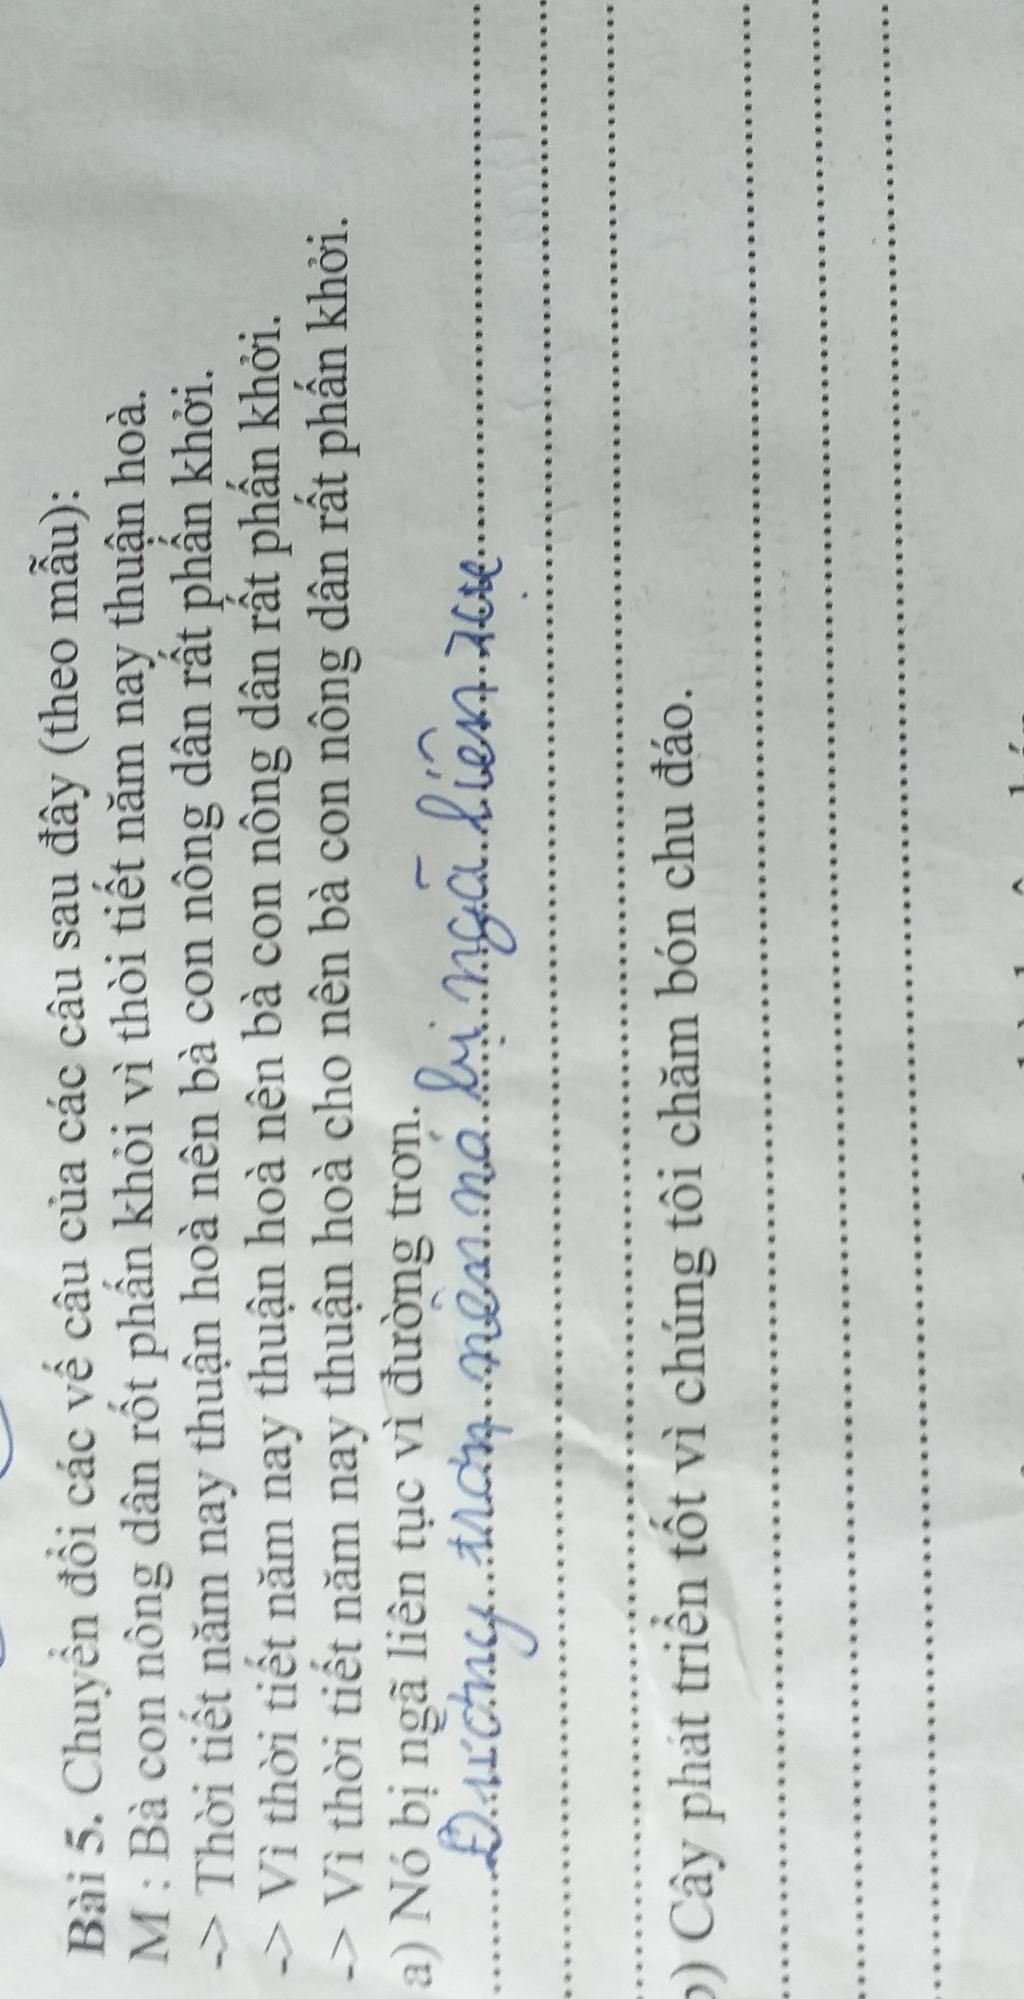 Bài 5. Chuyển đổi các vế câu của các câu sau đây (theo mẫu):
M : Bà con nông dân rốt phấn khỏi vì thời tiết năm nay thuận hoà.
-> Thời tiết năm nay thuận hoà nên bà con nông dân rất phấn khởi.
-> Vì thời tiết năm nay thuận hoà nên bà con nông dân rất phấn khởi.
-> Vì thời tiết năm nay thuận hoà cho nên bà con nông dân rất phấn khởi.
a) Nó bị ngã liên tục vì đường trơn.
Đường trơn nên nó bị ngã liên tục
b) Cây phát triển tốt vì chúng tôi chăm bón chu đáo.